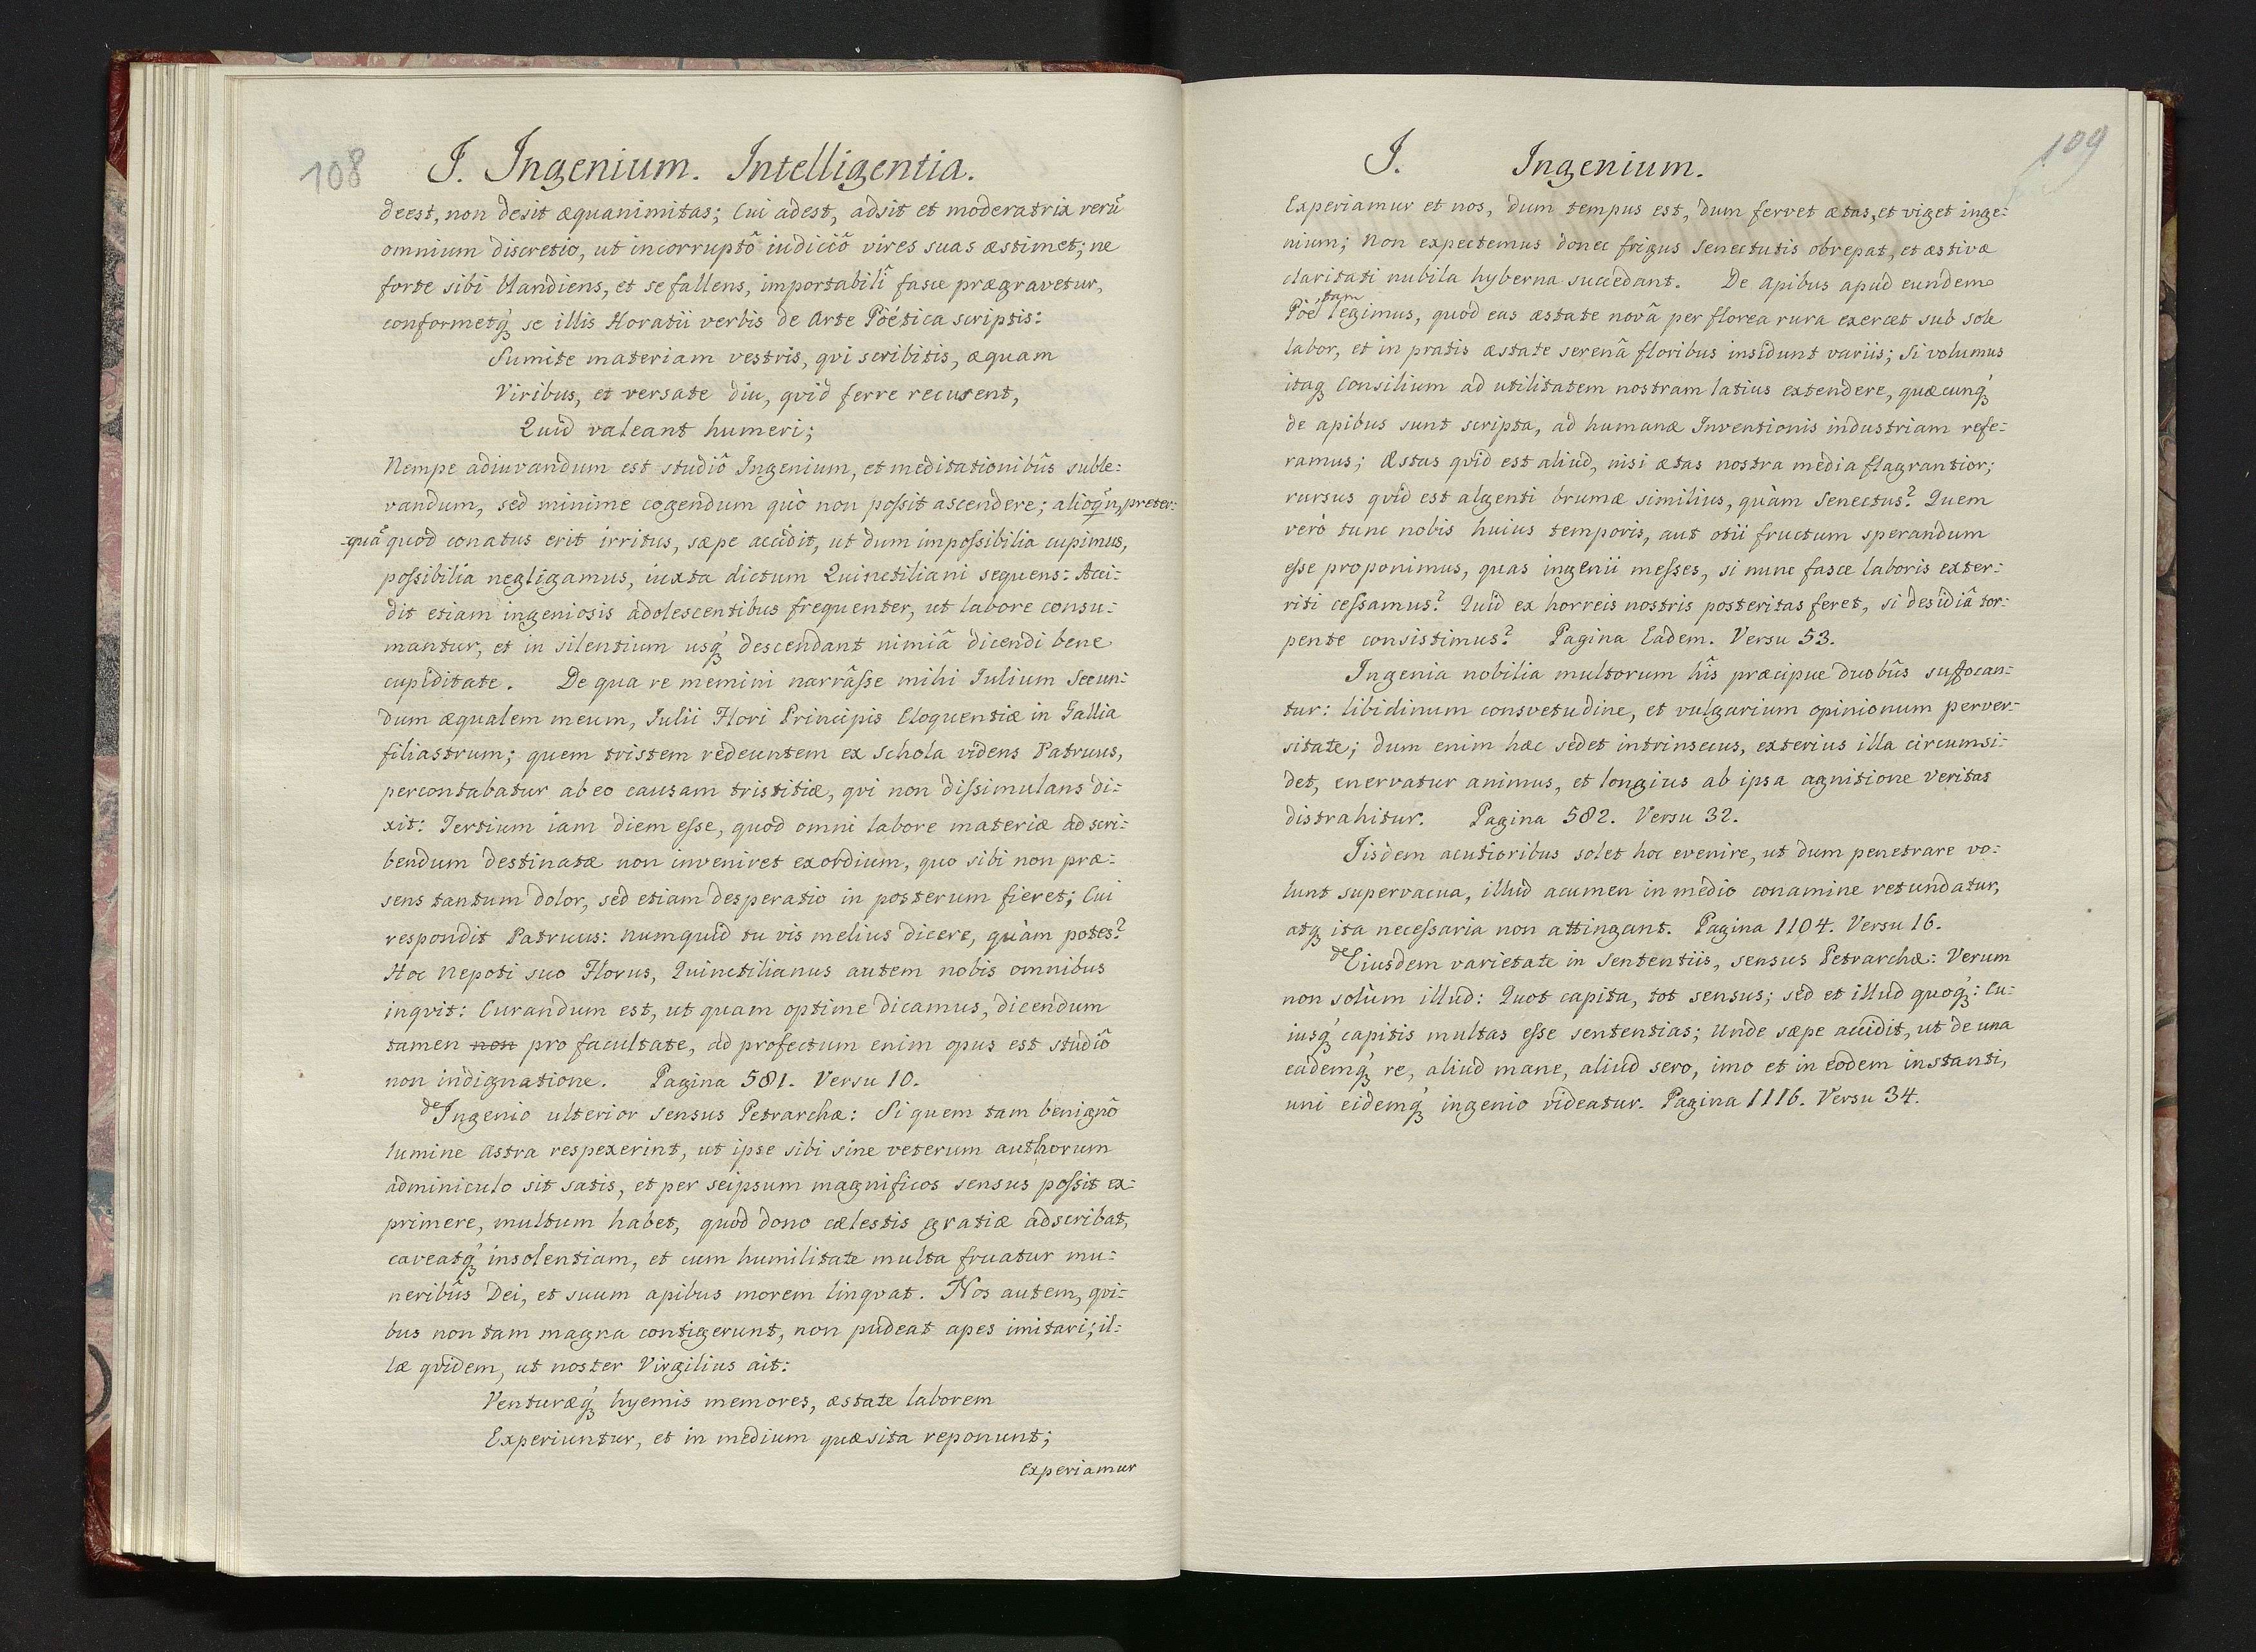 108
I. Ingenium. Intelligentia.
deest, non desit æquanimitas; Cui adest, adsit et moderatrix rerũ
omnium discretio, ut incorruptô iudiciô vires suas æstimet; ne
forte sibi blandiens, et se fallens, importabilî fasce prægravetur,
conformetq́ꝫ se illis Horatii verbis de Arte Pöética scriptis:
Sumite materiam vestris, qvi scribitis, æquam
Viribus, et versate diu, qvid ferre recusent,
Quid valeant humeri;
Nempe adiuvandum est studiô Ingenium, et meditationibûs suble:
vandum, sed minime cogendum quò non poſsit ascendere; alioq̃n, preter:
:quã quod conatus erit irritus, sæpe accidit, ut dum impoſsibilia cupimus,
poſsibilia negligamus, iuxta dictum Quinctiliani sequens: Acci:
dit etiam ingeniosis adolescentibus frequenter, ut labore consu:
mantur, et in silentium usq́ꝫ descendant nimiâ dicendi bene
cupiditate. De qua re memini narrâſse mihi Iulium Secun:
dum æqualem meum, Iulii Flori Principis Eloquentiæ in Gallia
filiastrum; quem tristem redeuntem ex Schola videns Patruus,
percontabatur ab eo causam tristitiæ, qvi non diſsimulans di:
xit: Tertium iam diem eſse, quod omni labore materiæ ad scri:
bendum destinatæ non inveniret exordium, quo sibi non præ:
sens tantum dolor, sed etiam desperatio in posterum fieret; Cui
respondit Patruus: Numquid tu vis melius dicere, quàm potes?
Hoc Nepoti suo Florus, Quinctilianus autem nobis omnibus
inqvit: Curandum est, ut quam optime dicamus, dicendum
tamen non pro facultate, ad profectum enim opus est studiô
non indignatione. Pagina 581. Versu 10.
de Ingenio ulterior sensus Petrarchæ: Si quem tam benignô
lumine Astra respexerint, ut ipse sibi sine veterum authorum
adminiculo sit satis, et per seipsum magnificos sensus poſsit ex:
primere, multum habet, quod dono cælestis gratiæ adscribat,
caveatq́ꝫ insolentiam, et cum humilitate multa fruatur mu:
neribûs Dei, et suum apibus morem linqvat. Nos autem, qvi:
bus non tam magna contigerunt, non pudeat apes imitari; il:
læ qvidem, ut noster Virgilius ait:
Venturæq́ꝫ hyemis memores, æstate laborem
Experiuntur, et in medium quæsita reponunt;
Experiamur
109
I. Ingenium.
Experiamur et nos, dum tempus est, dum fervet ætas, et viget inge:
nium; Non expectemus donec frigus Senectutis obrepat, et æstivæ
claritati nubila hyberna succedant. De Apibus apud eundem
Pöétam legimus, quod eas æstate novâ per florea rura exercet sub sole
labor, et in pratis æstate serenâ floribus insidunt variis; Si volumus
itaqꝫ Consilium ad utilitatem nostram latius extendere, quæcunq́ꝫ
de apibus sunt scripta, ad humanæ Inventionis industriam refe:
ramus; Æstas qvid est aliud, nisi ætas nostra media flagrantior;
rursus qvid est algenti brumæ similius, quàm Senectus? Quem
verò tunc nobis huius temporis, aut otii fructum sperandum
eſse proponimus, quas ingenii meſses, si nunc fasce laboris exter:
riti ceſsamus? Quid ex horreis nostris posteritas feret, si desidiâ tor:
pente consistimus? Pagina Eadem. Versu 53.
Ingenia nobilia multorum hîs præcipue duobûs suffocan:
tur: libidinum consvetudine, et vulgarium opinionum perver:
sitate; dum enim hæc sedet intrinsecus, exterius illa circumsi:
det, enervatur animus, et longius ab ipsa agnitione Veritas
distrahitur. Pagina 582. Versu 32.
Iisdem acutioribus solet hoc evenire, ut dum penetrare vo:
lunt supervacua, illud acumen in medio conamine retundatur,
atqꝫ ita neceſsaria non attingant. Pagina 1104. Versu 16.
de Eiusdem varietate in Sententiis, sensus Petrarchæ: Verum
non solùm illud: Quot capita, tot sensus; sed et illud quoq́ꝫ: Cu:
iusq́ꝫ capitis multas eſse sententias; Unde sæpe accidit, ut de una
eademq́ꝫ re, aliud mane, aliud sero, imo et in eodem instanti,
uni eidemq́ꝫ ingenio videatur. Pagina 1116. Versu 34.